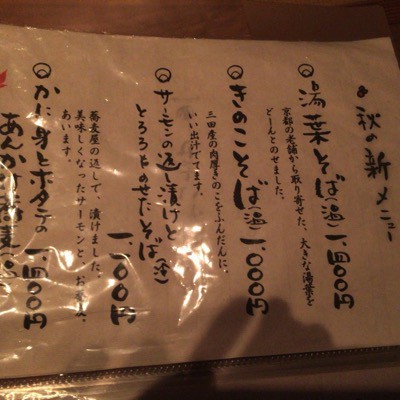 秋の新メニュー
湯葉そば(温) 一、四〇〇円
京都の老舗から取り寄せた、大きな湯葉を
どーんとのせました。
きのこそば(温) 一、三〇〇円
三田産の肉厚きのこをふんだんに。
いい出汁でてます。
サーモンの返し漬けと
とろろのせだそば(冷) 一、一〇〇円
蕎麦屋の返しで、漬けました。
美味しくなったサーモンと、お蕎麦、
あいます。
かに身とホタテの
あんかけ蕎麦 一、四〇〇円